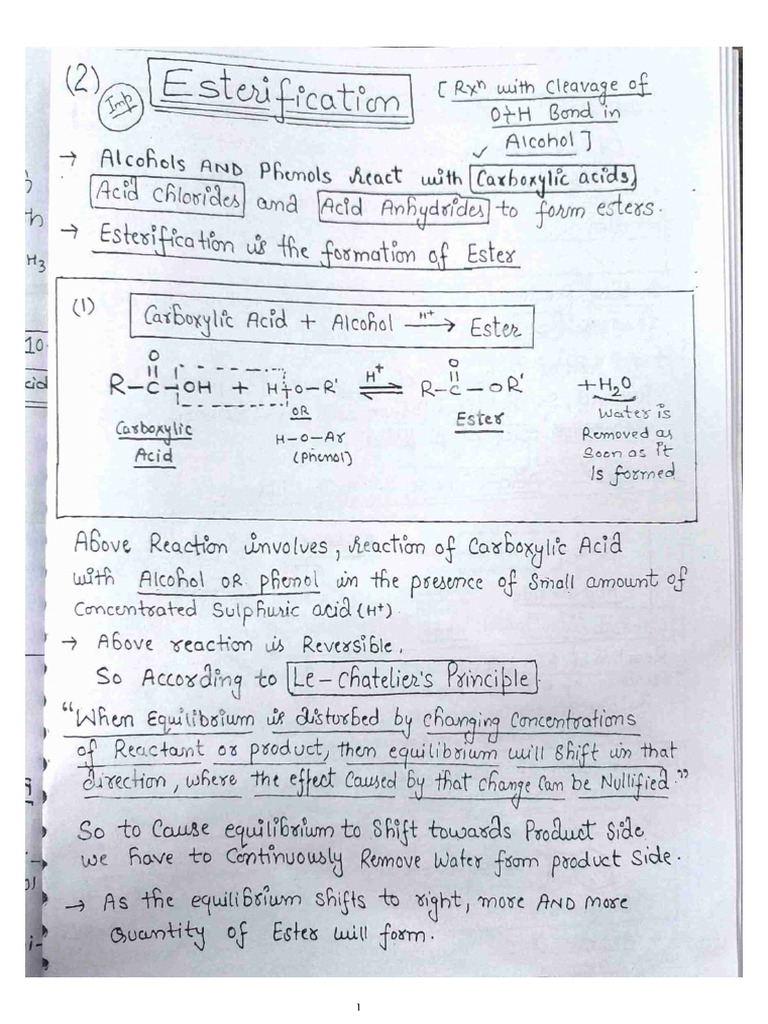 (2) Imp Esterification [ Rxⁿ with Cleavage of
O-H Bond in
Alcohol ]
→ Alcohols AND Phenols react with Carboxylic acids,
Acid Chlorides and Acid Anhydrides to form esters.
→ Esterification is the formation of Ester
(1) Carboxylic Acid + Alcohol H⁺ → Ester
O O
R-C-OH + H-O-R' H⁺ ⇌ R-C-OR' +H₂O
OR Ester Water is
Carboxylic H-O-Ar Removed as
Acid (Phenol) Soon as it
Is formed
Above Reaction involves, reaction of Carboxylic Acid
with Alcohol OR phenol in the presence of Small amount of
Concentrated Sulphuric acid (H⁺).
→ Above reaction is Reversible.
So According to Le-Chatelier's Principle
"When Equilibrium is disturbed by changing Concentrations
of Reactant or product, then equilibrium will Shift in that
direction, where the effect Caused by that change Can be Nullified."
So to Cause equilibrium to Shift towards Product Side
we have to Continuously Remove Water from product Side.
→ As the equilibrium shifts to right, more AND more
Quantity of Ester will form.
th
H₃
10
cid
1